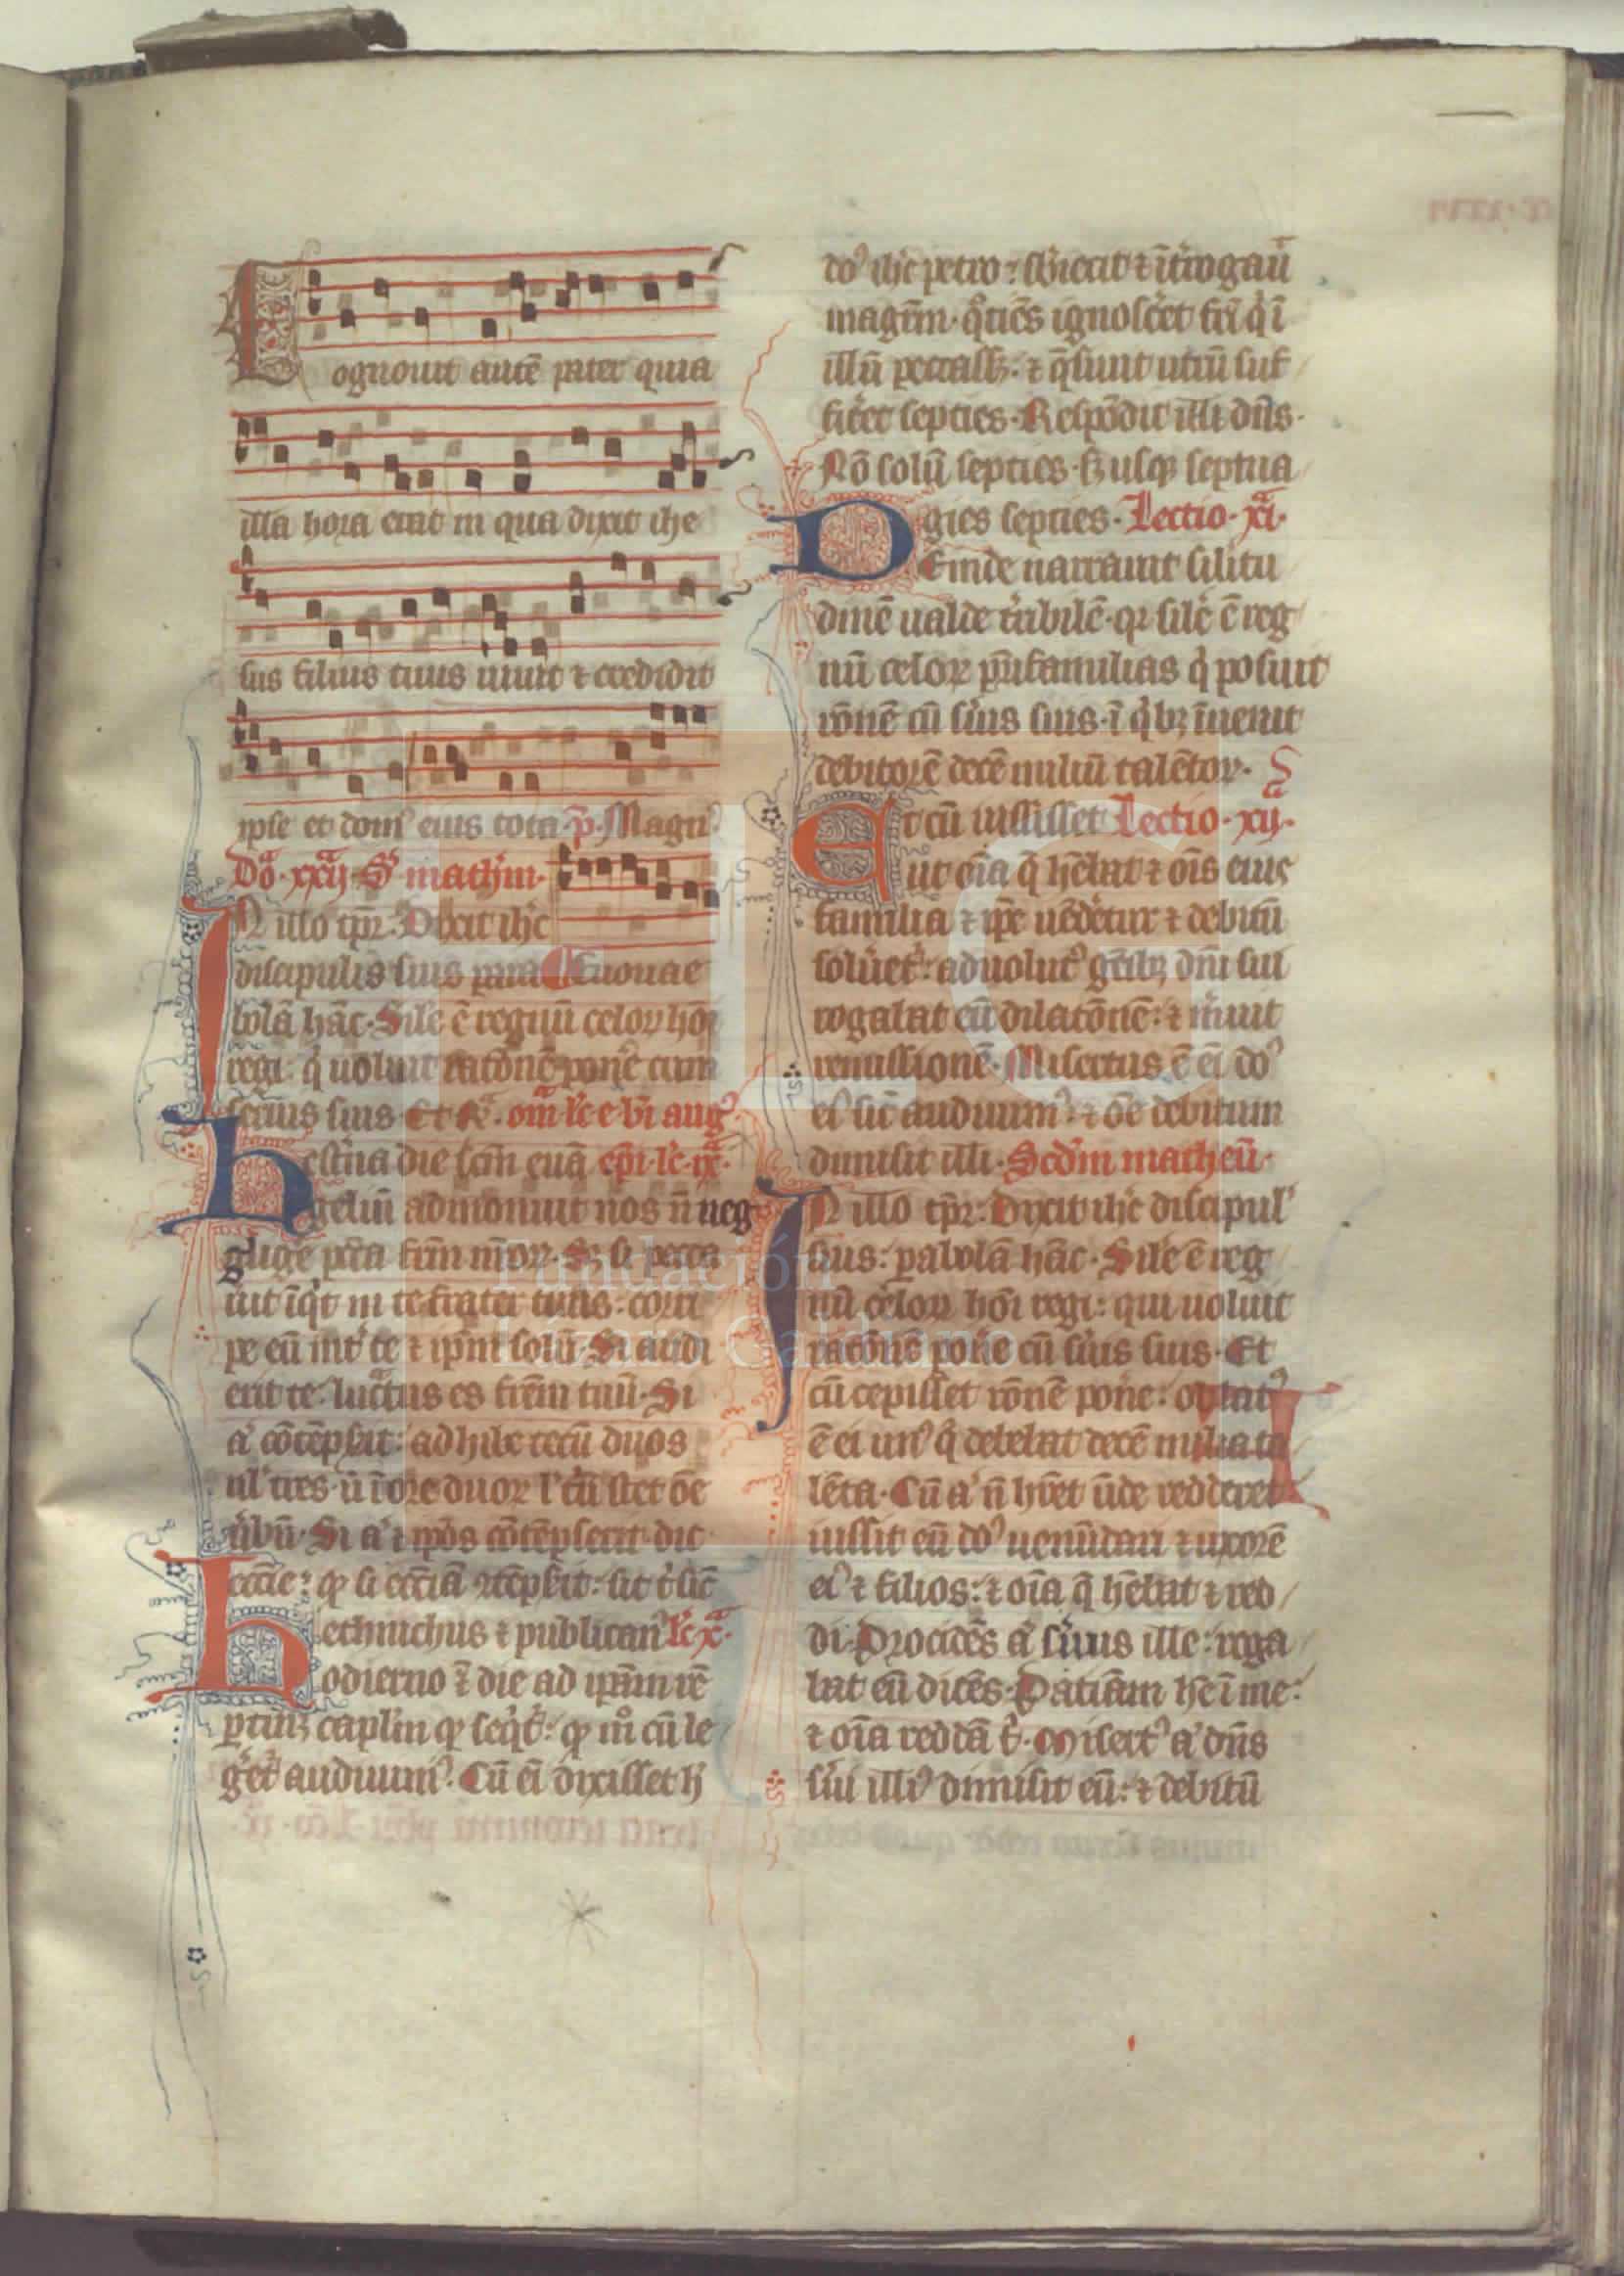 Cognouit autē pater quia
illa hora erat in qua dixit ihe
sus filius tuus uiuit ⁊ credidit
ipse et dom᷒ eius tota p̄. Magn̄.
Dō. xxij. S᷒ math̄m.
IN illo tp̄r. Dixit ih̄c
discipulis suis para Euouae
bolā hāc. Sil̄e ē regnū celoꝝ hōi
regi: q̇ uoluit ratōnē ponē cum
seruis suis. Et R̄. om̄. l̄c. e. bī aug᷒
hesťna die scm̄ euā ep̄i. l̄c. ix.
geliū admonuit nos n̄ neg
glige pctā frm̄ nr̄oꝝ. Sꝫ si pecca
uit īq̇t in te frater tuus: corri
pe eū int᷒ te ⁊ ip̄m solū. Si audi
erit te: lucatus es frēm tuū. Si
a᷒ cōtēpsit: adhibe tecū duos
ul᷒ tres. ū ī ore duoꝝ l᷒ t᷒ū stet ōe
ūbū. Si a᷒ ⁊ ipōs cōtēpserit. dic
eccīe: ꝙ si eccīā ꝯtēpsit: sit t᷒ sic̄
ethnichus ⁊ publican᷒ l̄c. x.
hodierno ī die ad ip̄am rē
ꝑtinꝫ capl̄m ꝙ seq̇t᷒: ꝙ m̊ cū le
ḡet᷒ audiuim᷒. Cū ei dixisset h̄
do᷒ ih̄c petro: sbiecit ⁊ īt᷒rogaū
magr̄m. q̊tiēs ignoscēt fri q̇ ī
illū peccassꝫ: ⁊ q̄siuit utrū suf
fic̄et septies. Respōdit illi dn̄s.
Nō solū septies. sꝫ usqꝫ septua
gies septies. Lectio. xi.
Deinde narrauit silitu
dinē ualde t᷒ribilē. qꝛ sil̄e ē reg
nū celoꝝ pr̄ifamilias q̇ posuit
rōnē cū s᷒uis suis. ī q̇bꝫ īuenit
debitorē decē miliū talētoꝝ.
Et cū iussisset Lectio. xij.
ut oīa q̄ hēbat ⁊ oīs eius
familia ⁊ ip̄e uēdētur ⁊ debitū
soluēt᷒: aduolut᷒ gēibꝫ dn̄i sui
rogabat eū dilatōnē: ⁊ m᷒uit
remissionē. Misertus ē ei do᷒
ei᷒ sic̄ audiuim᷒: ⁊ ōe debitum
dimisit illi. Scdm̄ matheū.
IN illo tp̄r: Dixit ih̄c discipul᷒
suis: ꝑabolā hāc. Sil̄e ē reg
nū celoꝝ hōi regi: qui uoluit
ratōnē ponē cū s᷒uis suis. Et
cū cepisset rōnē ponē: oblat᷒
ē ei un᷒ q̇ debebat decē milia ta
lēta. Cū a᷒ n̄ hr̄et ūde redderet
iussit eū do᷒ uenūdari ⁊ uxorē
ei᷒ ⁊ filios: ⁊ oīa q̄ hēbat ⁊ red
di. Procidēs a᷒ s᷒uus ille: roga
bat eū dicēs. Patiām hē ī me:
⁊ oīa reddā t᷒. Misert᷒ a᷒ dn̄s
s᷒ui illi᷒ dimisit eū: ⁊ debitū
FLG
Fundación
Lázaro Galdiano